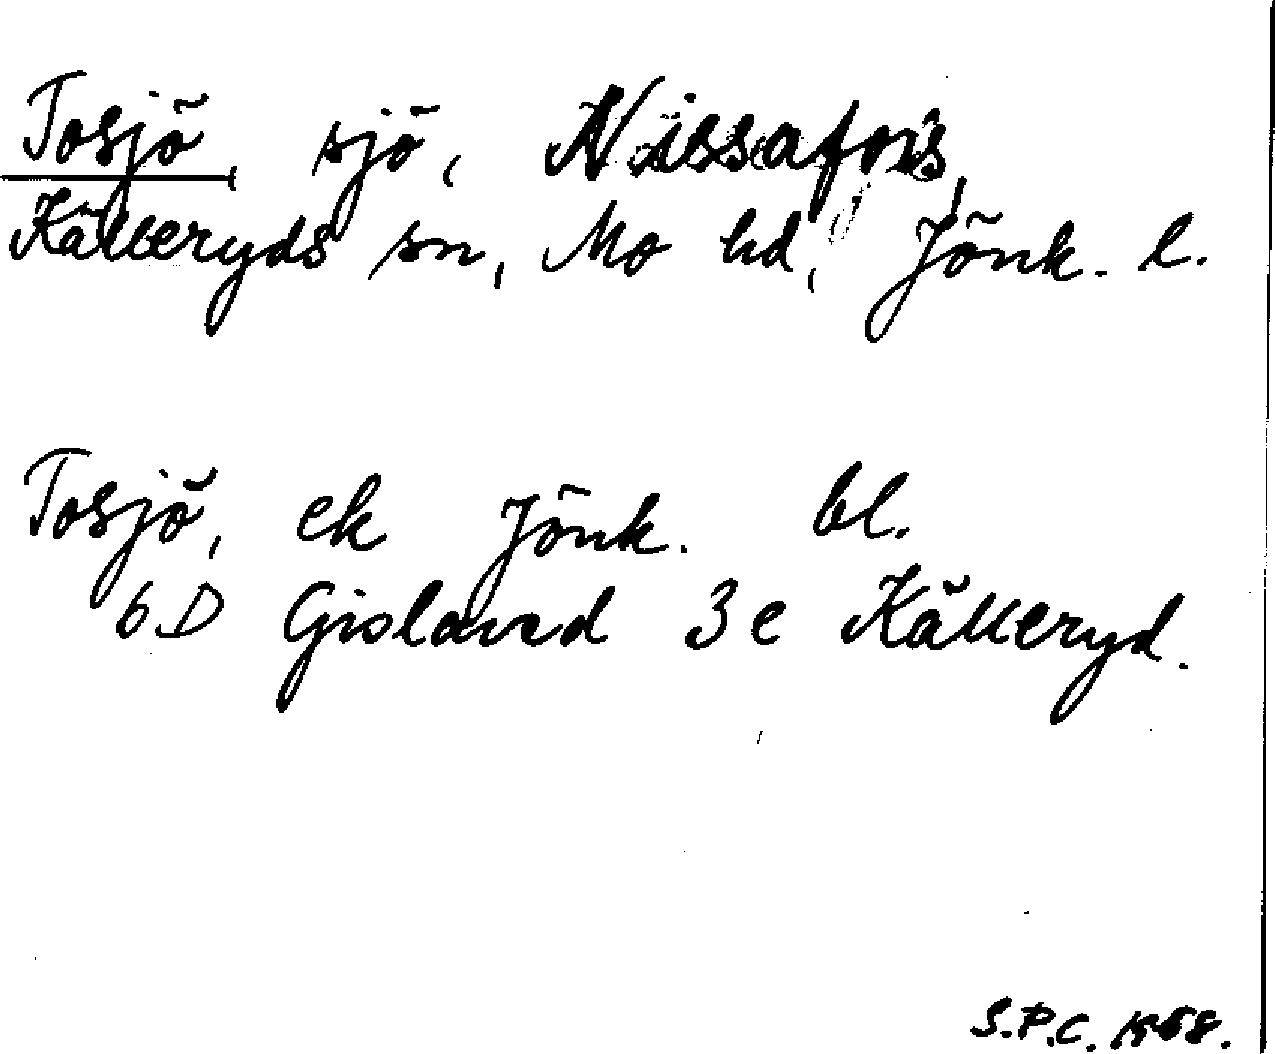 Tosjö, sjö, Nissafors,
Källeryds sn, Mo hd, Jönk. l.
Tosjö, ek Jönk. bl.
6 D Gislaved 3 e Källeryd.
S.P.C. 1968.